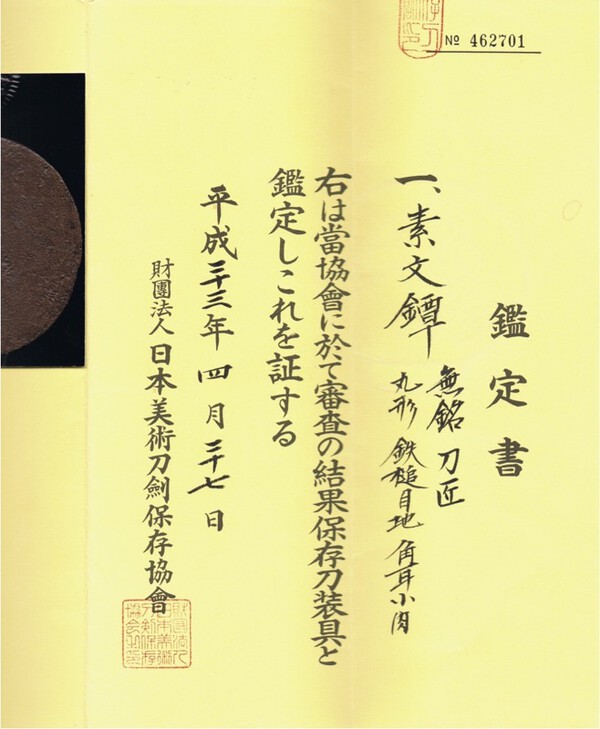 № 462701
鑑定書
一、素文鐔 無銘 刀匠
丸形 鉄槌目地 角耳小肉
右は當協會に於て審査の結果保存刀装具と
鑑定しこれを証する
平成二十三年四月二十七日
財團法人日本美術刀劍保存協會